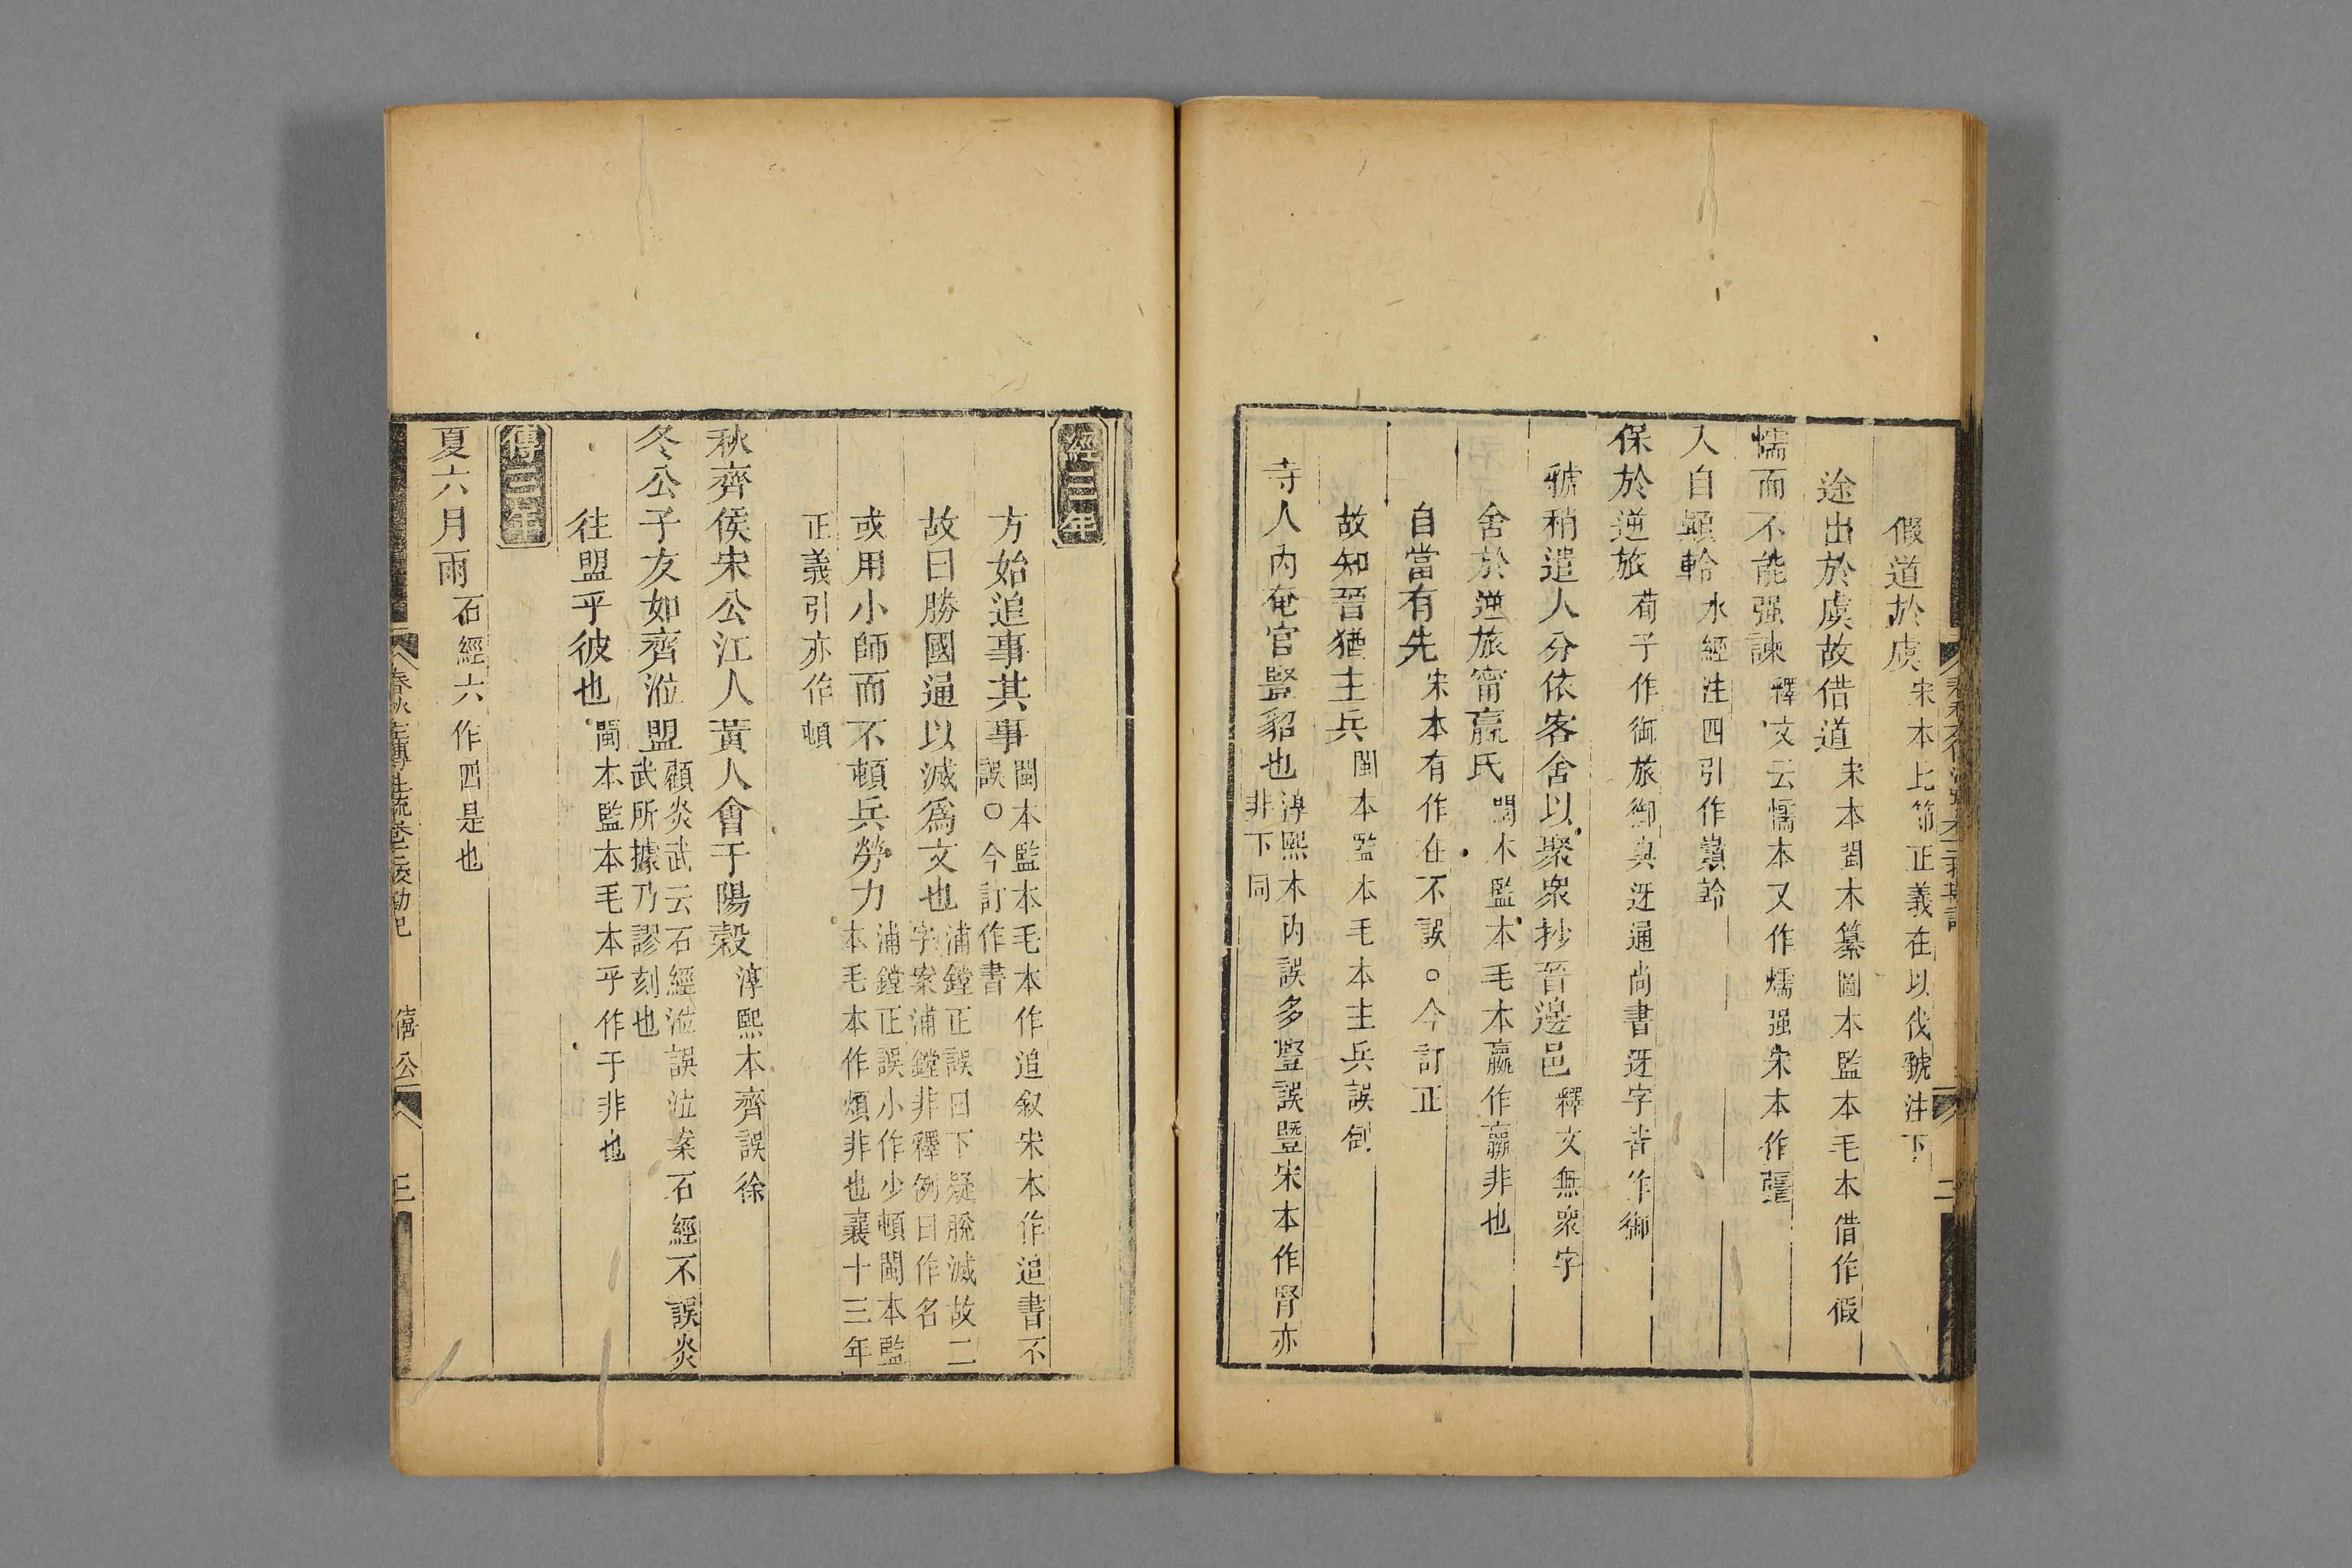 假道於虞宋本此節正義在以伐虢注下
途出於虞故借道宋本閩本纂圖本監本毛本借作假
懦而不能强諫釋文云懦本又作㦬强宋本作彊
入自顛軨水經注四引作巔軨
保於逆旅荀子作御旅御與迓通尚書迓字皆作御
虢稍遣人分依客舍以聚衆抄晉邊邑釋文無衆字
舍於逆旅甯嬴氏閩本監本毛本嬴作羸非也
自當有先宋本有作在不誤○今訂正
故知晉猶主兵閩本監本毛本主兵誤倒
寺人内奄官豎貂也淳熙本内誤多豎誤暨宋本作腎亦
非下同
經三年
方始追事其事閩本監本毛本作追叙宋本作追書不
誤○今訂作書
故曰勝國通以滅爲文也浦鏜正誤曰下疑脫滅故二
字案浦鏜非釋例曰作名
或用小師而不頓兵勞力浦鏜正誤小作少頓閩本監
本毛本作煩非也襄十三年
正義引亦作頓
秋齊侯宋公江人黃人會于陽榖淳熙本齊誤徐
冬公子友如齊涖盟顧炎武云石經涖誤泣案石經不誤炎
武所據乃謬刻也
往盟乎彼也閩本監本毛本乎作于非也
傳三年
夏六月雨石經六作四是也
春秋左傳注疏卷十二校勘記 僖公 三